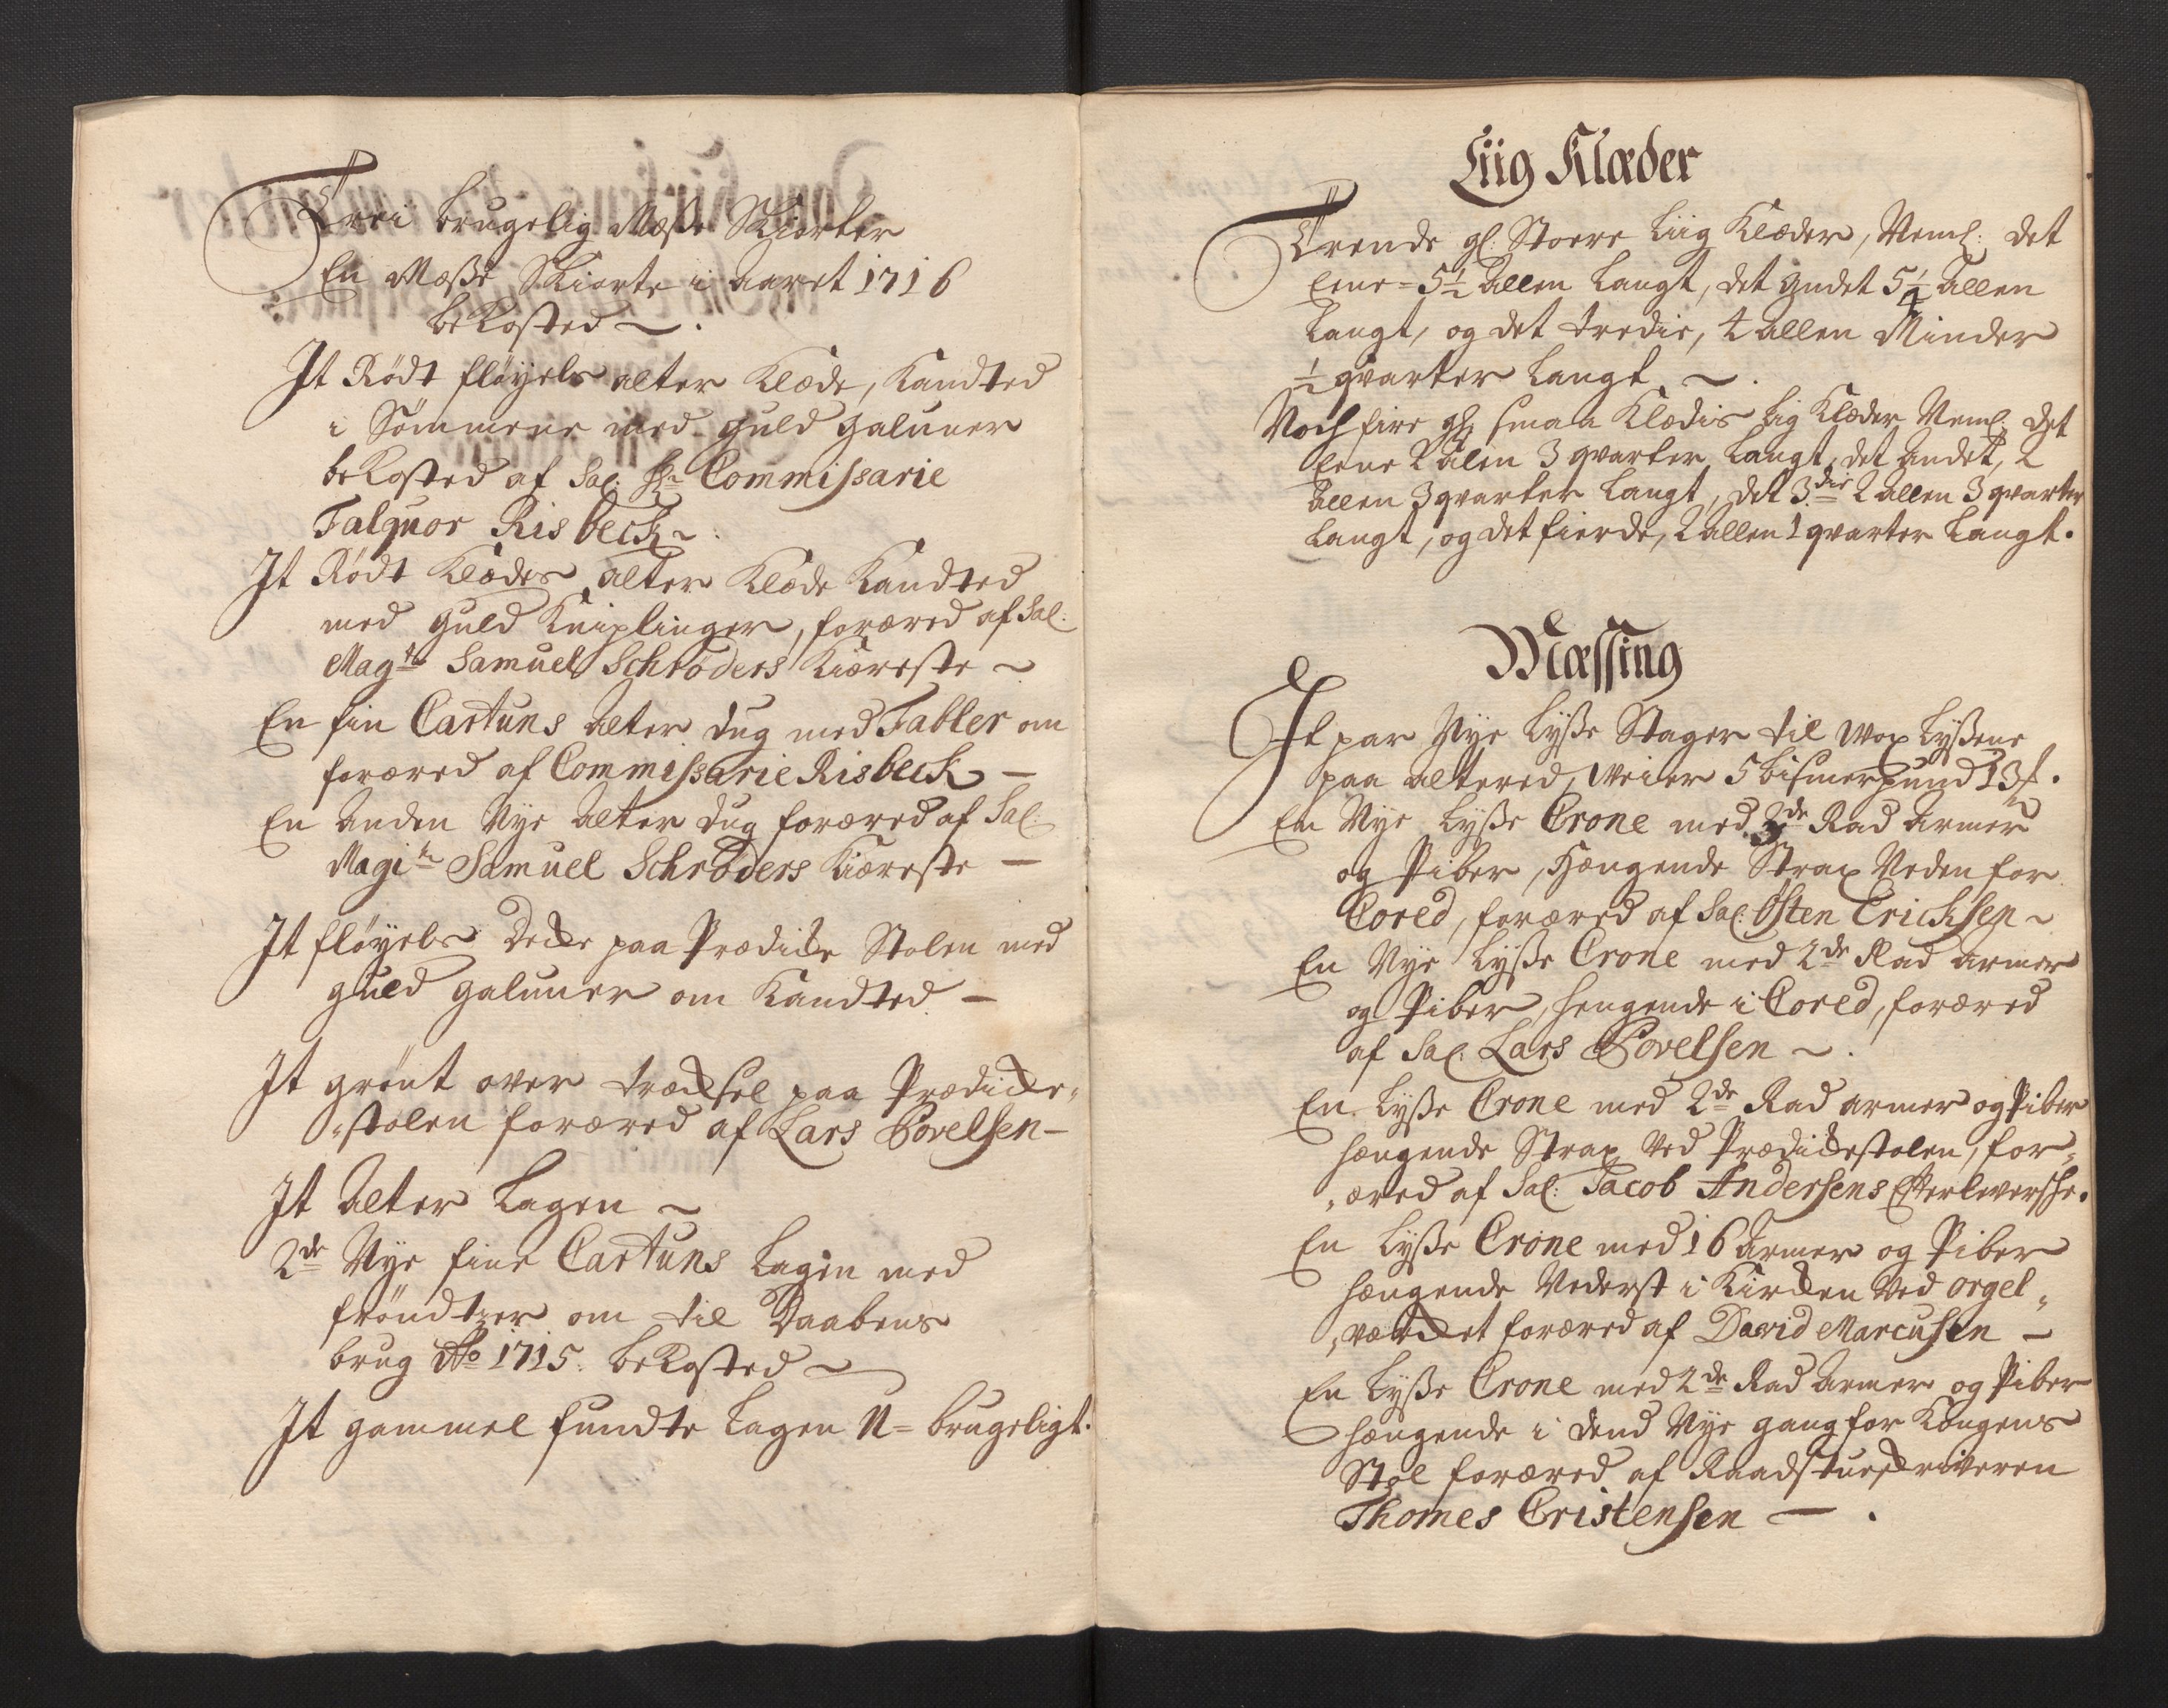 Trei brugelig Mæße Skiorter
En Mæße Skiorte i Aaret 1716
bekosted ~.
It Rödt fløyels alter Klæde, Kandted
i Sömmene med guld galuner
bekosted af Sal: Hr Commissarie
Falquor Risbeck ~.
It Rödt Klædes alter Klæde Kandted
med guld Kniplinger, foræred af Sal:
Magtr Samuel Schröders Kiæreste ~
En fin Cartuns alter dug med Tabler om
foræred af Commissarie Risbeck —
En Anden Nye Alter dug foræred af Sal:
Magitr Samuel Schröders Kiæreste —
It fløyels Decke paa Prædicke Stolen med
guld galuner om Kandted —
It grönt over træcksel paa Prædicke-
-stolen foræred af Lars Povelsen —
It Alter Lagen ~
2de Nye fine Cartuns Lagen med
fröndtzer om til Daabens
brug Ao 1715. bekosted ~
It gammel fundte Lagen U=brugeligt.
Liig Klæder
Trende gl: Stoere Liig Klæder, Neml: det
Eene= 5½ Allen Langt, det Andet 5¼ Allen
Langt, og det tredie, 4 Allen Minder
½ qvarter Langt. ~.
Noch fire gl: smaa Klædis Lig Klæder Neml: det
Eene 2 Alen 3 qvarter Langt, det Andet, 2
Allen 3 qvarter Langt, det 3die 2 Allen 3 qvarter
Langt, og det fierde, 2 Allen 1 qvarter Langt.
Mæssing
It par Nye Lyße Stager til Wox Lyßene
paa altered, Weier 5 bismerpund 13 .
En Nye Lyße Crone med 3de Rad Armer
og Piber, Hængende Strax Neden for
Cored, foræred af Sal: Østen Ericksen ~
En Nye Lyße Crone med 2de Rad Armer
og Piber, hengende i Cored, foræred
af Sal: Lars Povelsen ~.
En Lyße Crone med 2de Rad armer og Piber
hængende Strax Ved Prædickestolen, for-
-æred af Sal: Jacob Andersens Efterleversche.
En Lyße Crone med 16 Armer og Piber
hængende Nederst i Kircken Ved orgel-
-værcket foræred af David Marcusen —
En Lyße Crone med 2de Rad Armer og Piber
hængende i dend Nye gang for Kongens
Stoel foræred af Raadstueskriveren
Thomes Cristensen — .